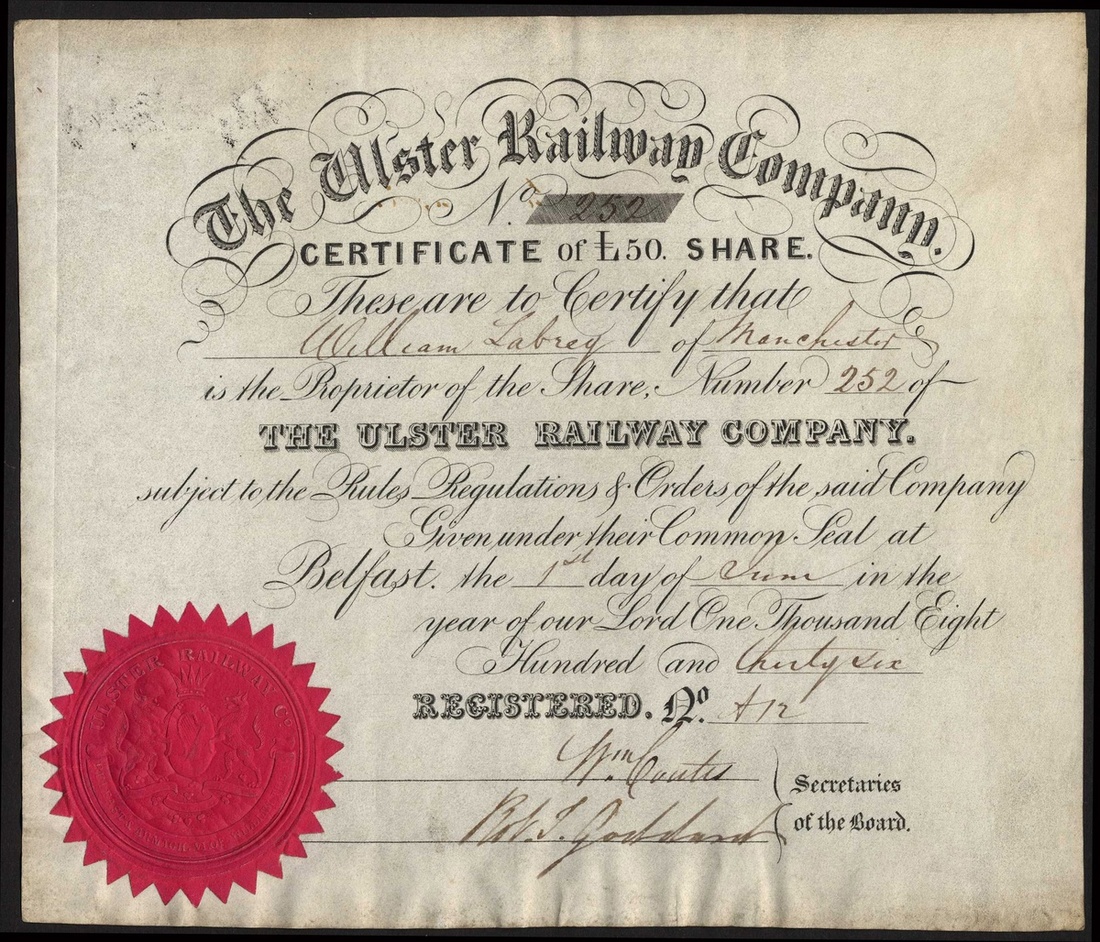 The Ulster Railway Company.
No. 252
CERTIFICATE of £50. SHARE.
These are to Certify that
William Labrey of Manchester
is the Proprietor of the Share, Number 252 of
THE ULSTER RAILWAY COMPANY.
subject to the Rules Regulations & Orders of the said Company
Given under their Common Seal at
Belfast. the 1st day of June in the
year of our Lord One Thousand Eight
Hundred and thirty six
REGISTERED. No. A12
Wm Coutes
Robt. T. Goddard
Secretaries
of the Board.
ULSTER RAILWAY Co